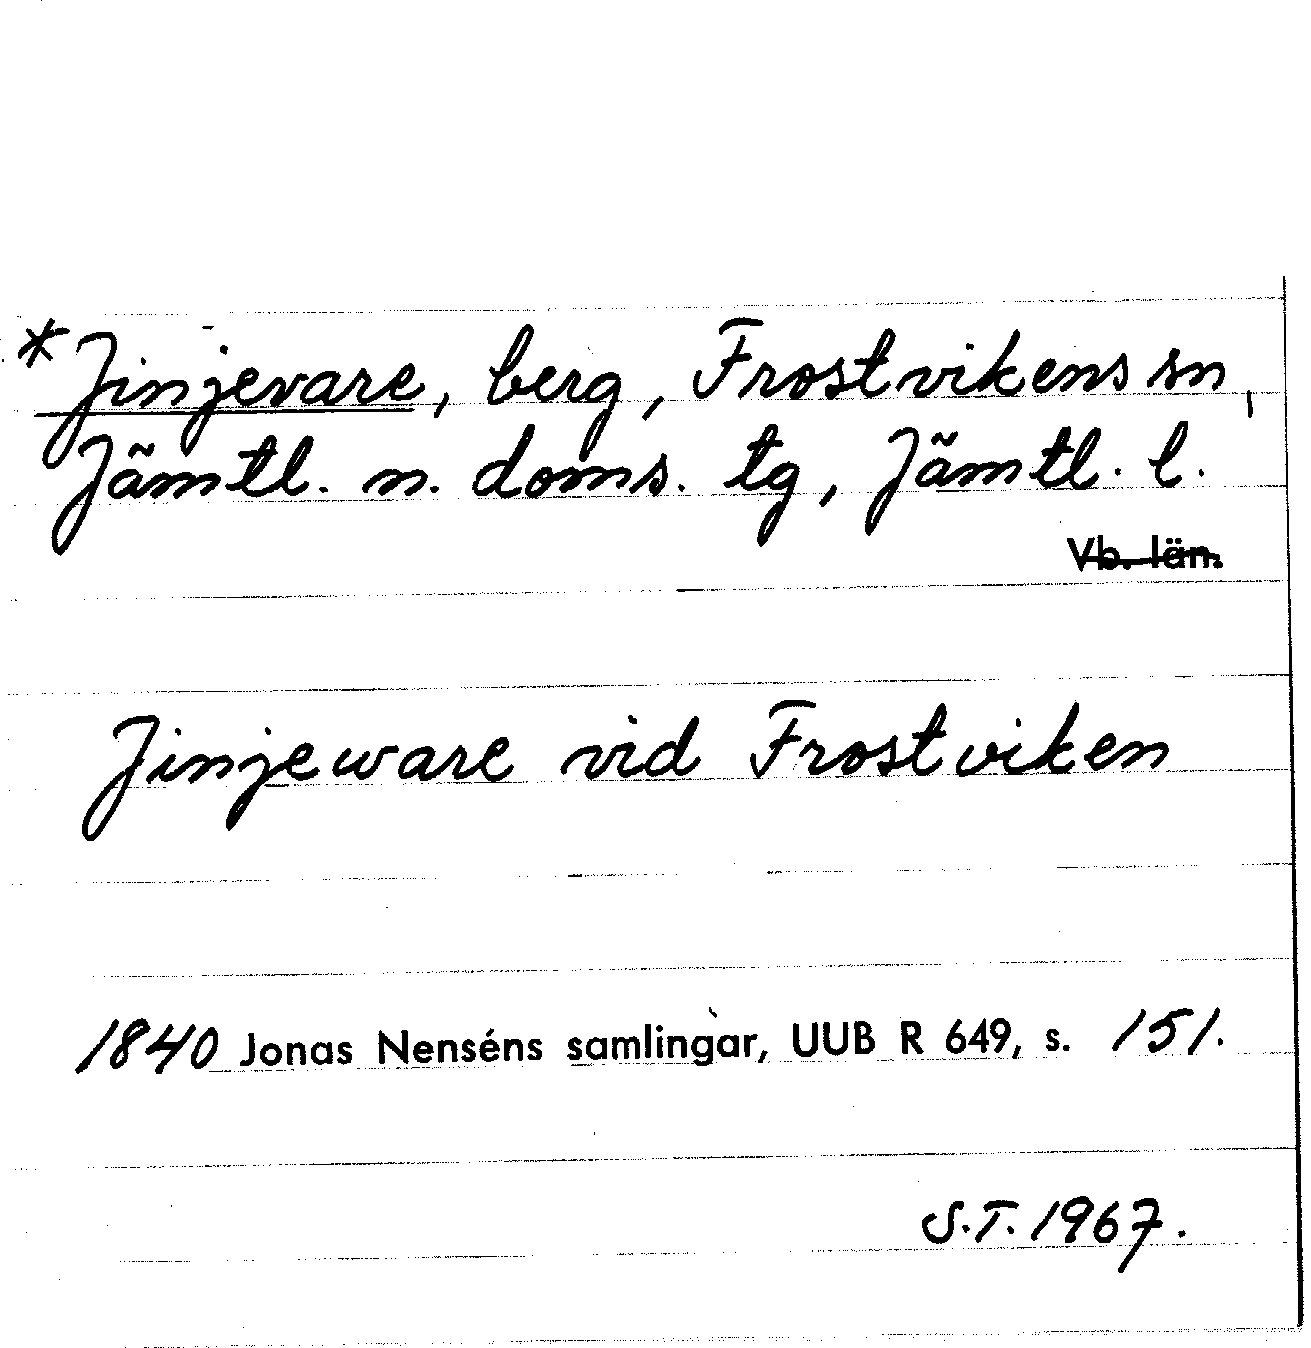 *Jinjevare, berg, Frostvikens sn,
Jämtl. n. doms. tg, Jämtl. l.
Vb. län.
Jinjeware vid Frostviken
1840 Jonas Nenséns samlingar, UUB R 649, s. 151.
S.T. 1967.